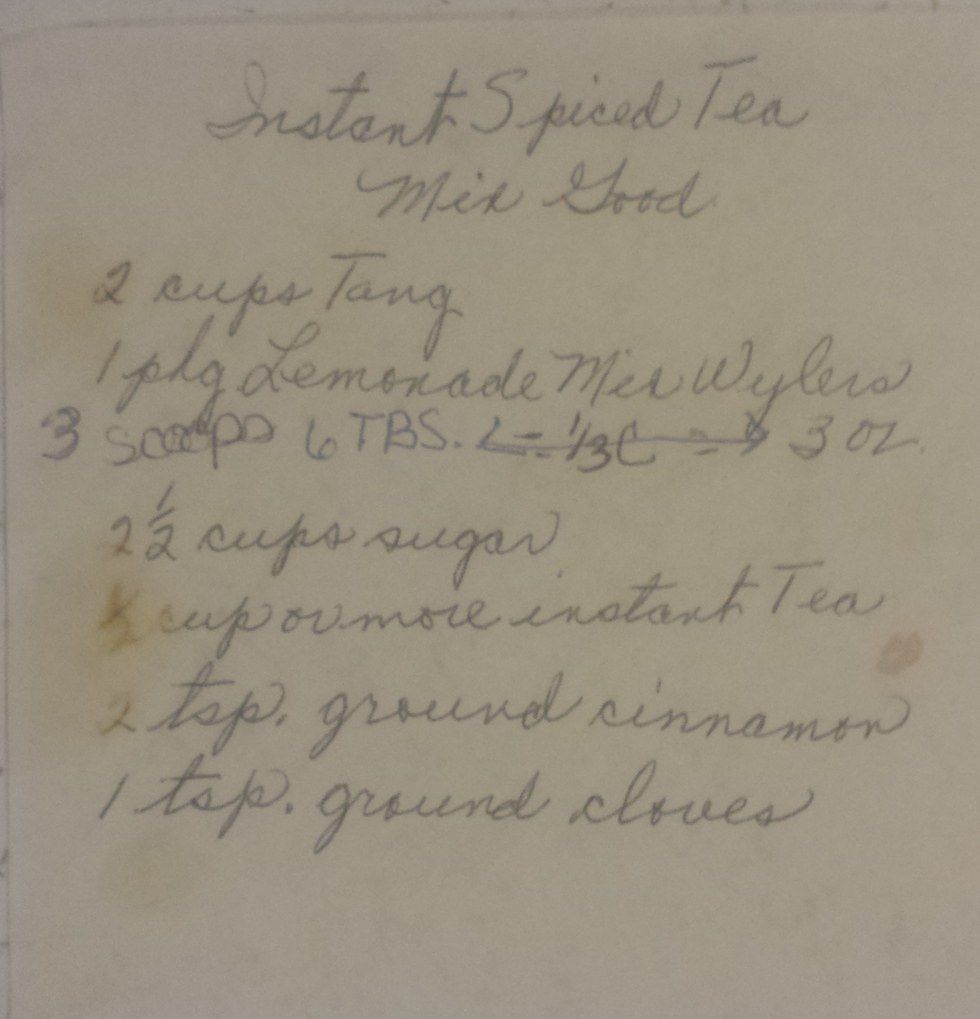 Instant Spiced Tea
Mix Good
2 cups Tang
1 pkg Lemonade Mix Wylers
3 scoops 6 TBS. <-- = 1/3 C = --> 3 oz.
2 1/2 cups sugar
1/2 cup or more instant Tea
2 tsp. ground cinnamon
1 tsp. ground cloves